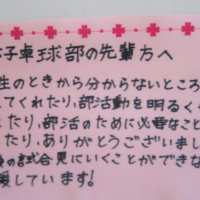 子卓球部の先輩方へ
生のときから分からないところ
てくれたり、部活動を明るく
たり、部活のために必要なこと
たり、ありがとうございまし
の試合見にいくことができな
援しています!